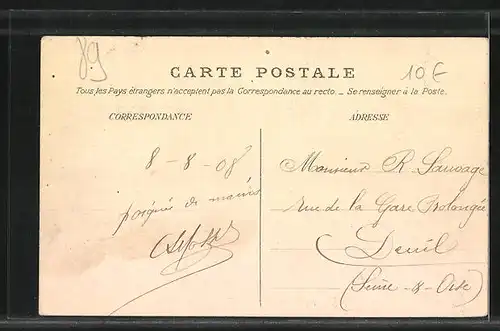 89
CARTE POSTALE
10€
Tous les Pays étrangers n'acceptent pas la Correspondance au recto. _ Se renseigner à la Poste.
CORRESPONDANCE
8-8-08
poignée de mains
ADRESSE
Monsieur R. Sauvage
rue de la Gare Prolongée
Deuil
(Seine-&-Oise)